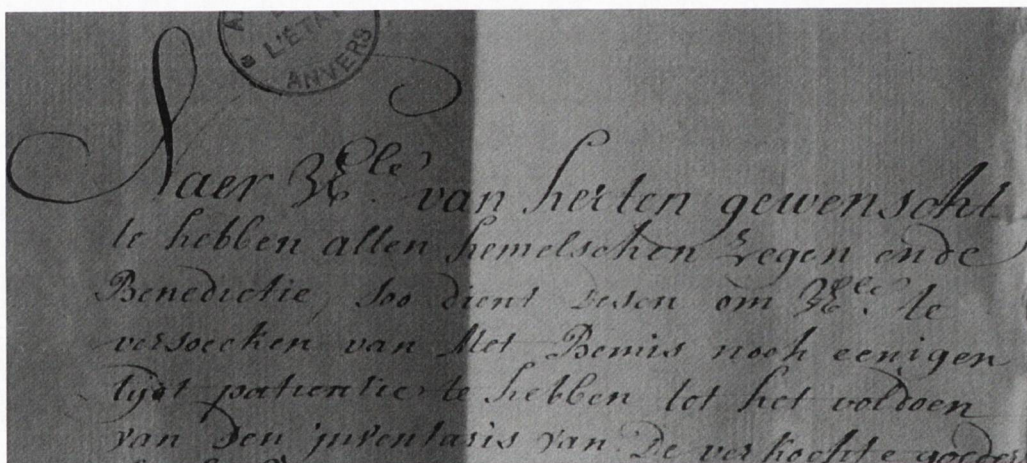 L'ÉTAT
ANVERS
Naer UEle van herten gewenscht
te hebben allen hemelschen zegen ende
Benedictie, soo dient desen om UEle. te
versoecken van Met Bemis noch eenigen
tyt patientie te hebben tot het voldoen
van den inventaris van de verkochte goeders